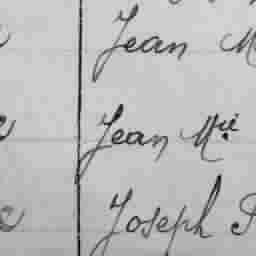 Jean M
Jean Mie
Joseph P